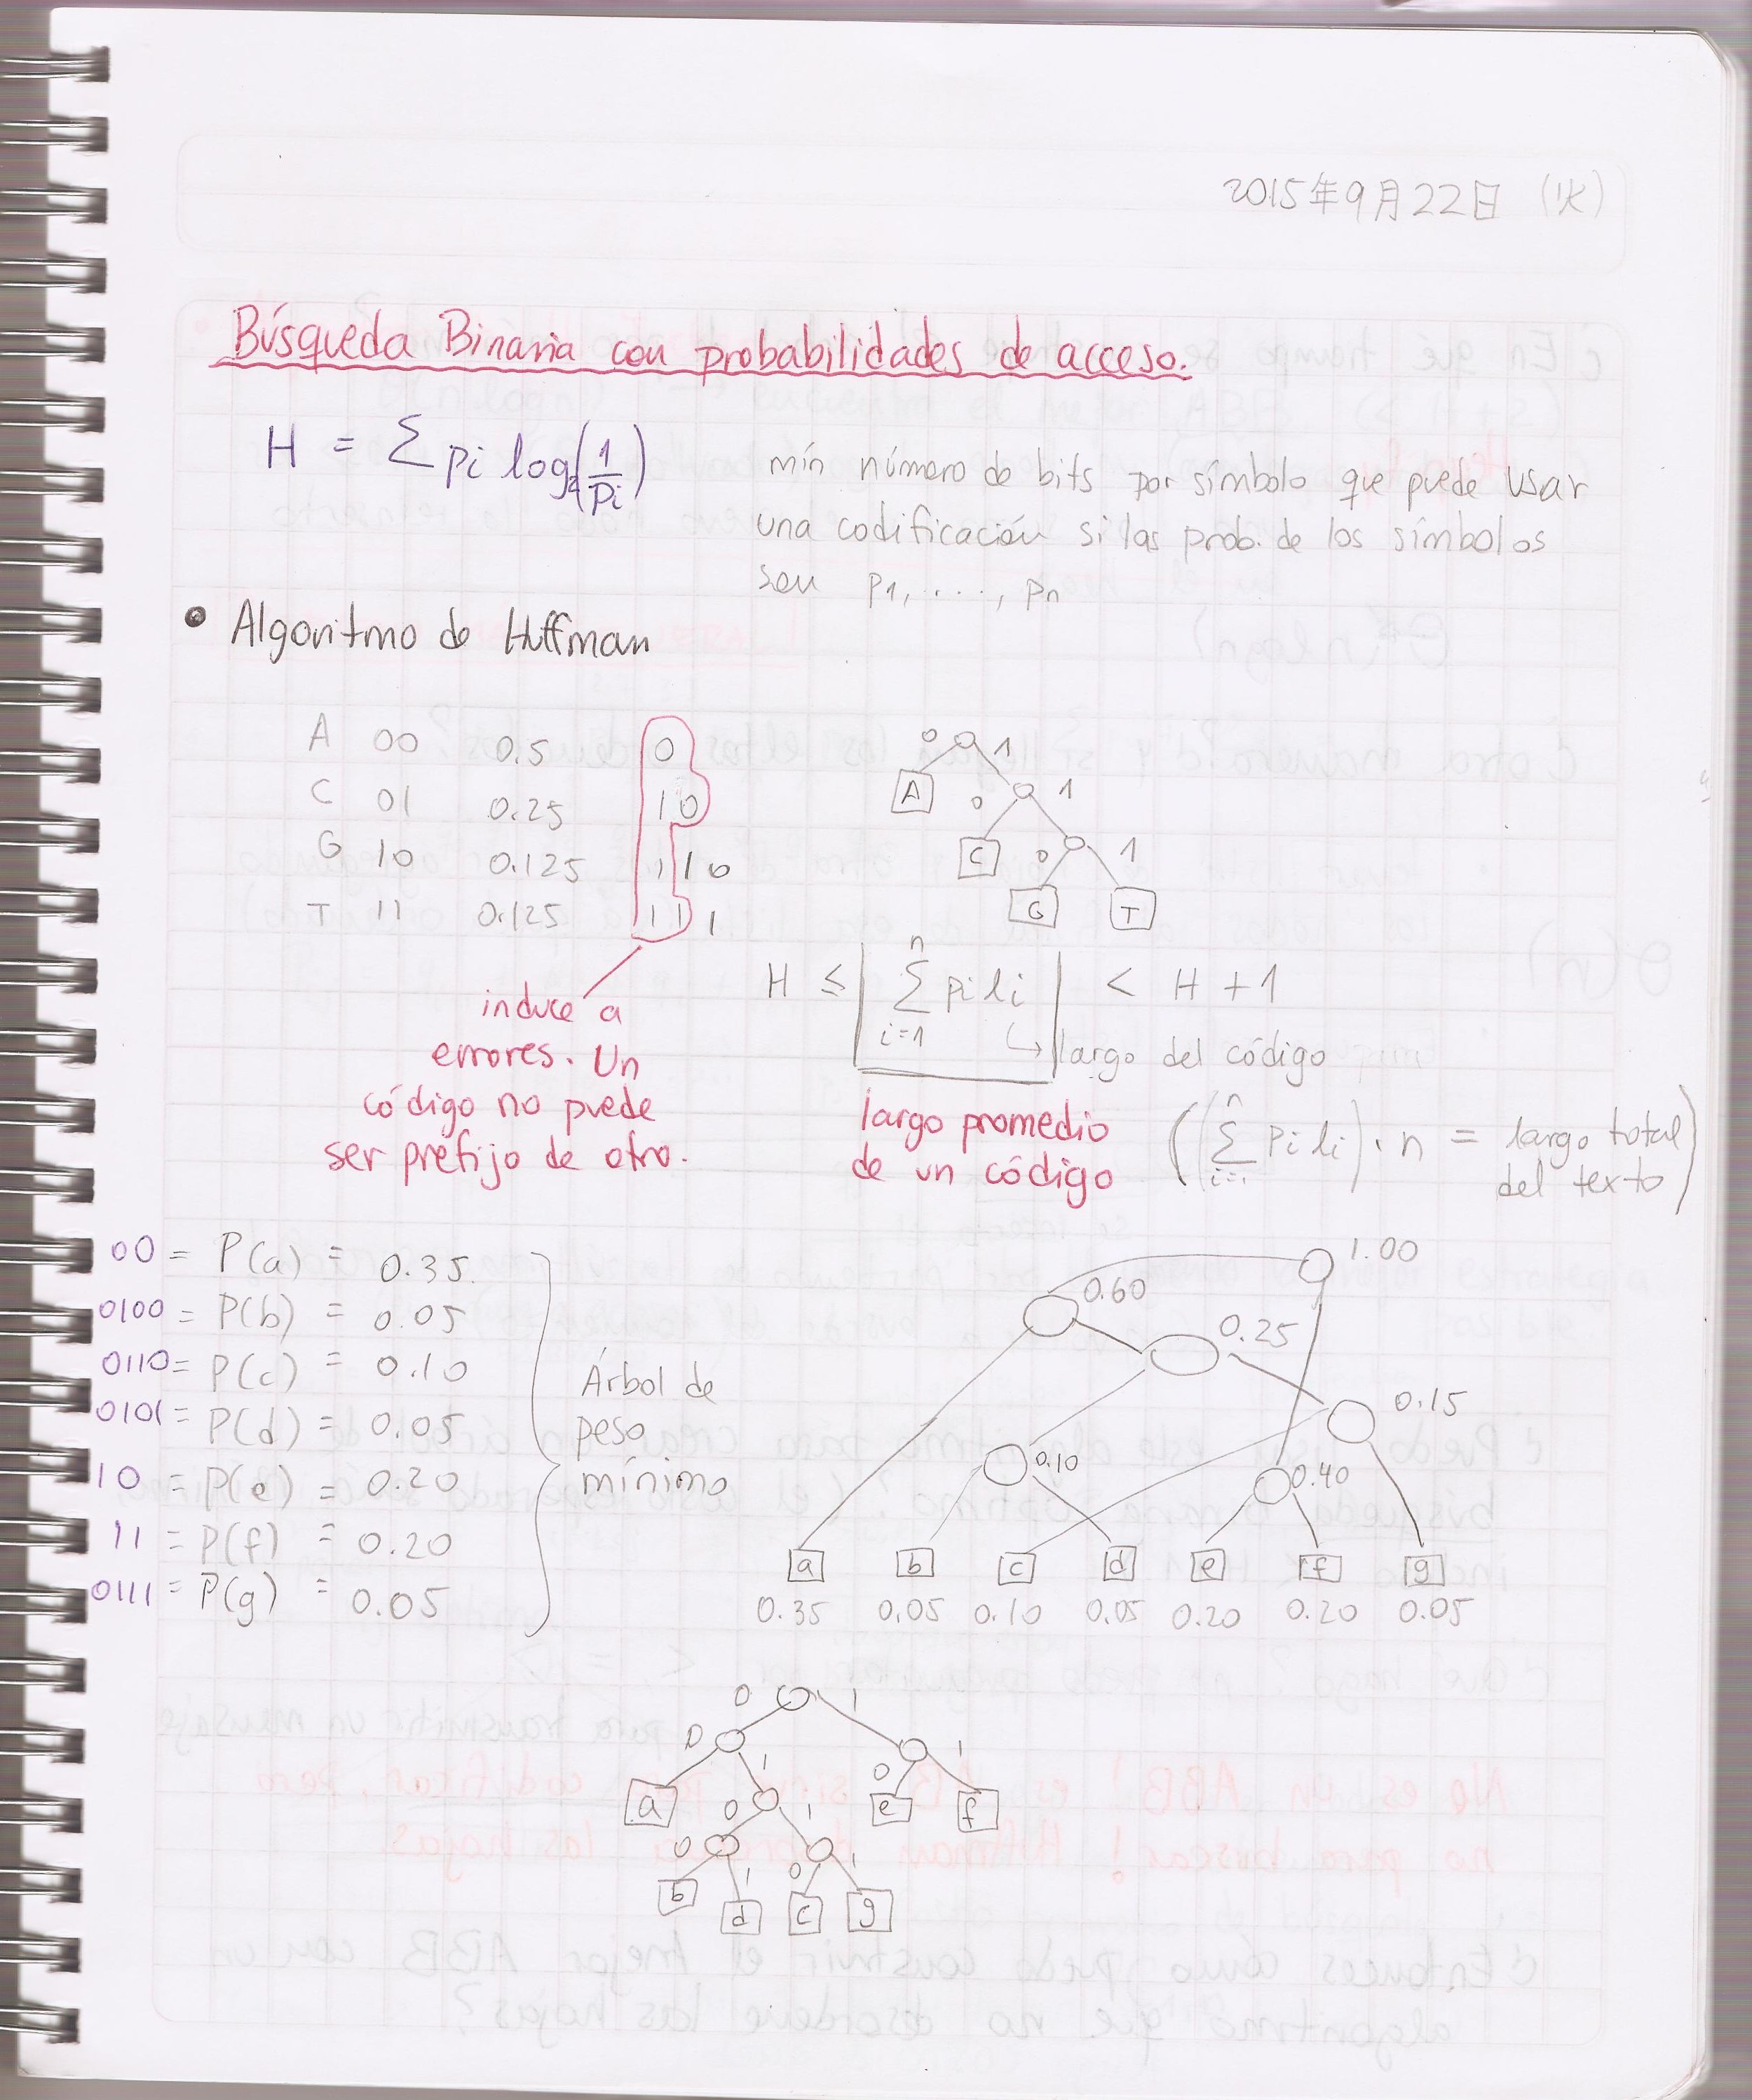 2015年9月22日 (火)
Búsqueda Binaria con probabilidades de acceso.
H = Σ pi log₂(1/pi)
mín número de bits por símbolo que puede usar
una codificación si las prob. de los símbolos
son p1, ...., pn
• Algoritmo de Huffman
A 00 0.5 0
C 01 0.25 10
G 10 0.125 110
T 11 0.125 111
0 1
A 0 1
C 0 1
G T
induce a
errores. Un
código no puede
ser prefijo de otro.
H ≤ | n Σ i=1 pi li | < H + 1
↳ largo del código
largo promedio
de un código
( ( n Σ i=1 pi li ) · n = largo total
del texto )
00 = P(a) = 0.35
0100 = P(b) = 0.05
0110 = P(c) = 0.10
0101 = P(d) = 0.05
10 = P(e) = 0.20
11 = P(f) = 0.20
0111 = P(g) = 0.05
Árbol de
peso
mínimo
1.00
0.60
0.25
0.15
0.10
0.40
a b c d e f g
0.35 0.05 0.10 0.05 0.20 0.20 0.05
0 1
0 1 0 1
a 0 1 e f
0 1 0 1
b d c g